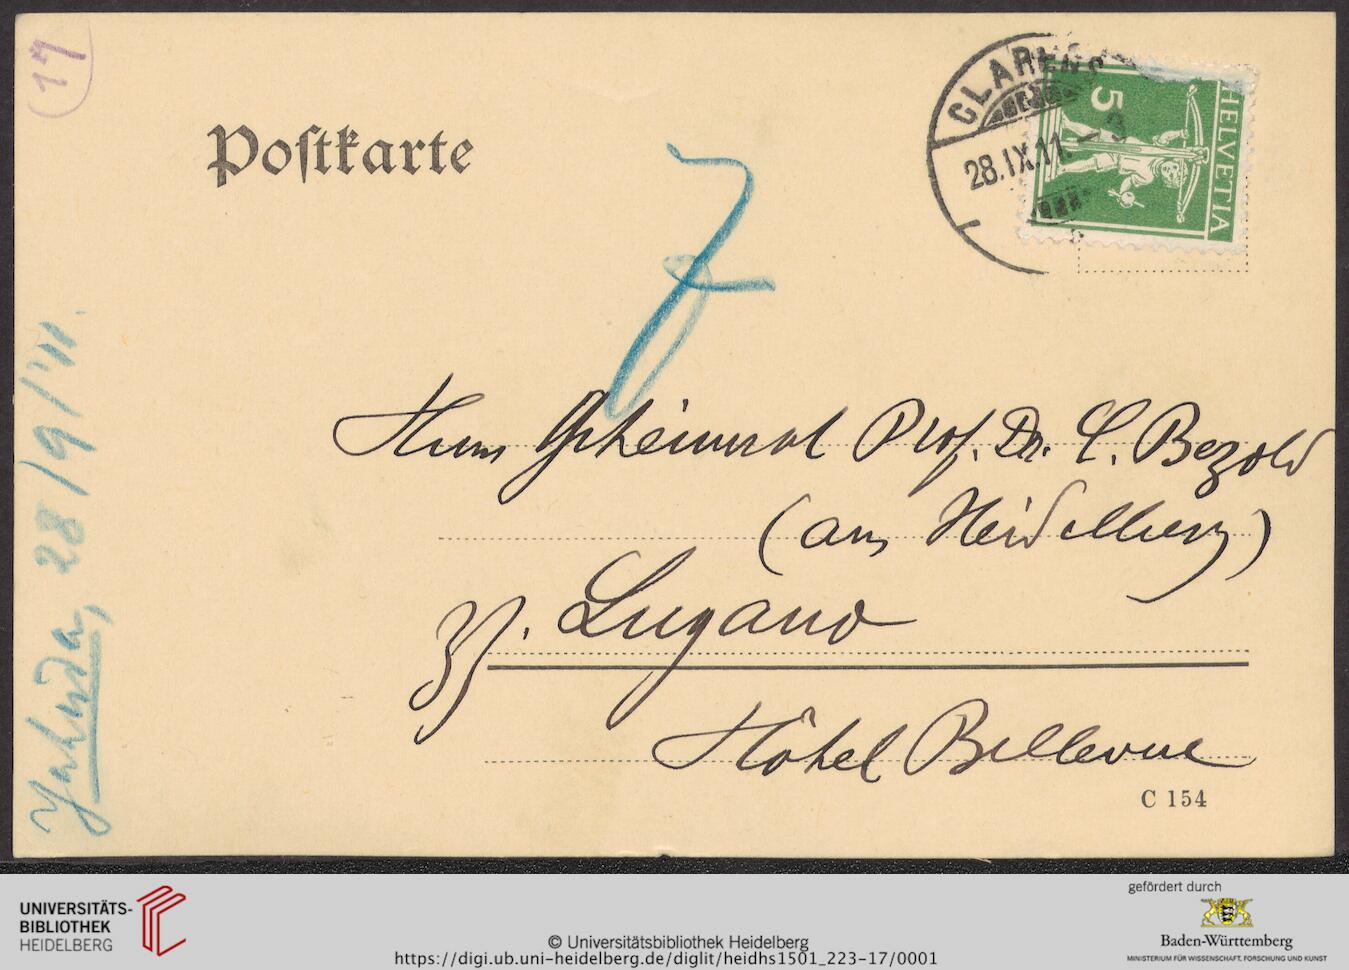 17
Postkarte
CLARENS
28.IX.11.–9
HELVETIA
5
7
Herrn Geheimrat Prof. Dr. C. Bezold
(aus Heidelberg)
Lugano
Hôtel Bellevue
C 154
Yahuda, 28/9/'11.
UNIVERSITÄTS-
BIBLIOTHEK
HEIDELBERG
© Universitätsbibliothek Heidelberg
https://digi.ub.uni-heidelberg.de/diglit/heidhs1501_223-17/0001
gefördert durch
Baden-Württemberg
MINISTERIUM FÜR WISSENSCHAFT, FORSCHUNG UND KUNST